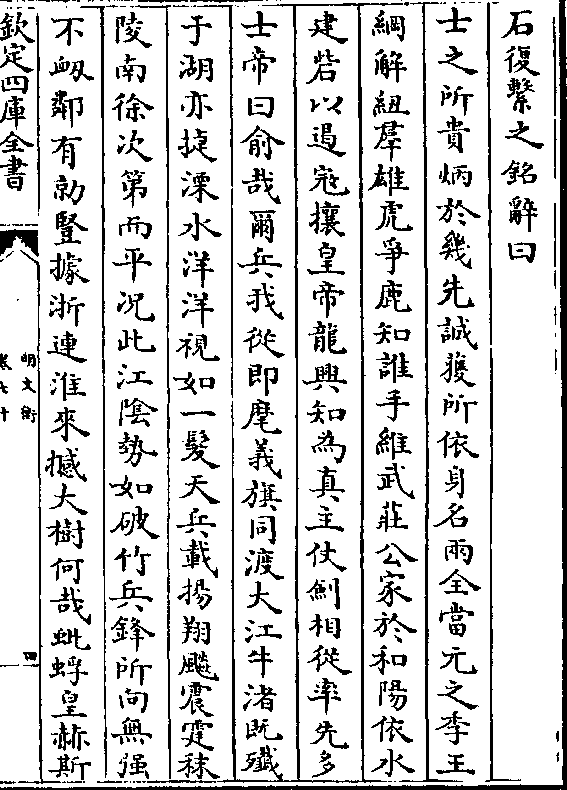 石復繫之銘辭曰
士之所貴炳於幾先誠獲所依身名兩全當元之季王
綱解紐羣雄虎爭鹿知誰手維武莊公家於和陽依水
建砦以遏寇攘皇帝龍興知為真主仗劒相從率先多
士帝曰俞哉爾兵我從即麾義旗同渡大江牛渚既殲
于湖亦㨗溧水洋洋視如一髮天兵載揚翔飈震霆秣
陵南徐次第而平况此江陰勢如破竹兵鋒所向無强
不衂鄰有勍豎據浙連淮來撼大樹何哉蚍蜉皇赫斯
欽定四庫全書
明文衡
卷六十
四